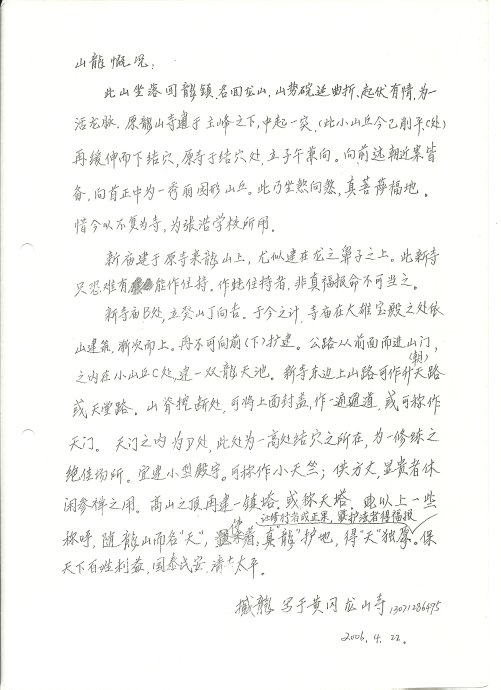 山龍慨况:
此山坐落回龍镇,名回龙山,山势硗延曲折、起伏有情,为一
活龙脉。原龍山寺遗于主峰之下,中起一突,(此小山丘今已削平C处)
再缓伸而下结穴,原寺于结穴处,立子午兼向。向前远朝近案皆
备,向首正中为一秀丽园形山丘。此乃坐然向然,真菩萨福地。
惜今以不复为寺,为张浩学校所用。
新庙建于原寺来龍山上,尤似建在龙之鼻子之上。此新寺
只恐难有能作住持,作此住持者,非真福报命不可当之。
新寺庙B处,立癸山丁向吉。于今之计,寺庙在大雄宝殿之处依
山建筑,渐次而上。再不可向前(下)扩建。公路从前面而进山门,
之内在小山丘C处,建一双龍天池。新寺东边上山路可作升(朝)天路
或天堂路。山脊挖断处,可将上面封盖,作一通道,或可称作
天门。天门之内为D处,此处为一高处结穴之所在,为一修珠之
绝佳场所。宜建小型殿宇。可称作小天竺;供方丈,显贵者休
闲参禅之用。高山之顶再建一镇塔。或称天塔。以上一些
让修行者成正果,聚护法者得福报
称呼,随龍山而名"天",真"龍"护地,得"天"独厚。保
天下百姓利益,国泰民安,清太平。
撼龍 写于黄冈龙山寺 13071286495
2006.4.22.